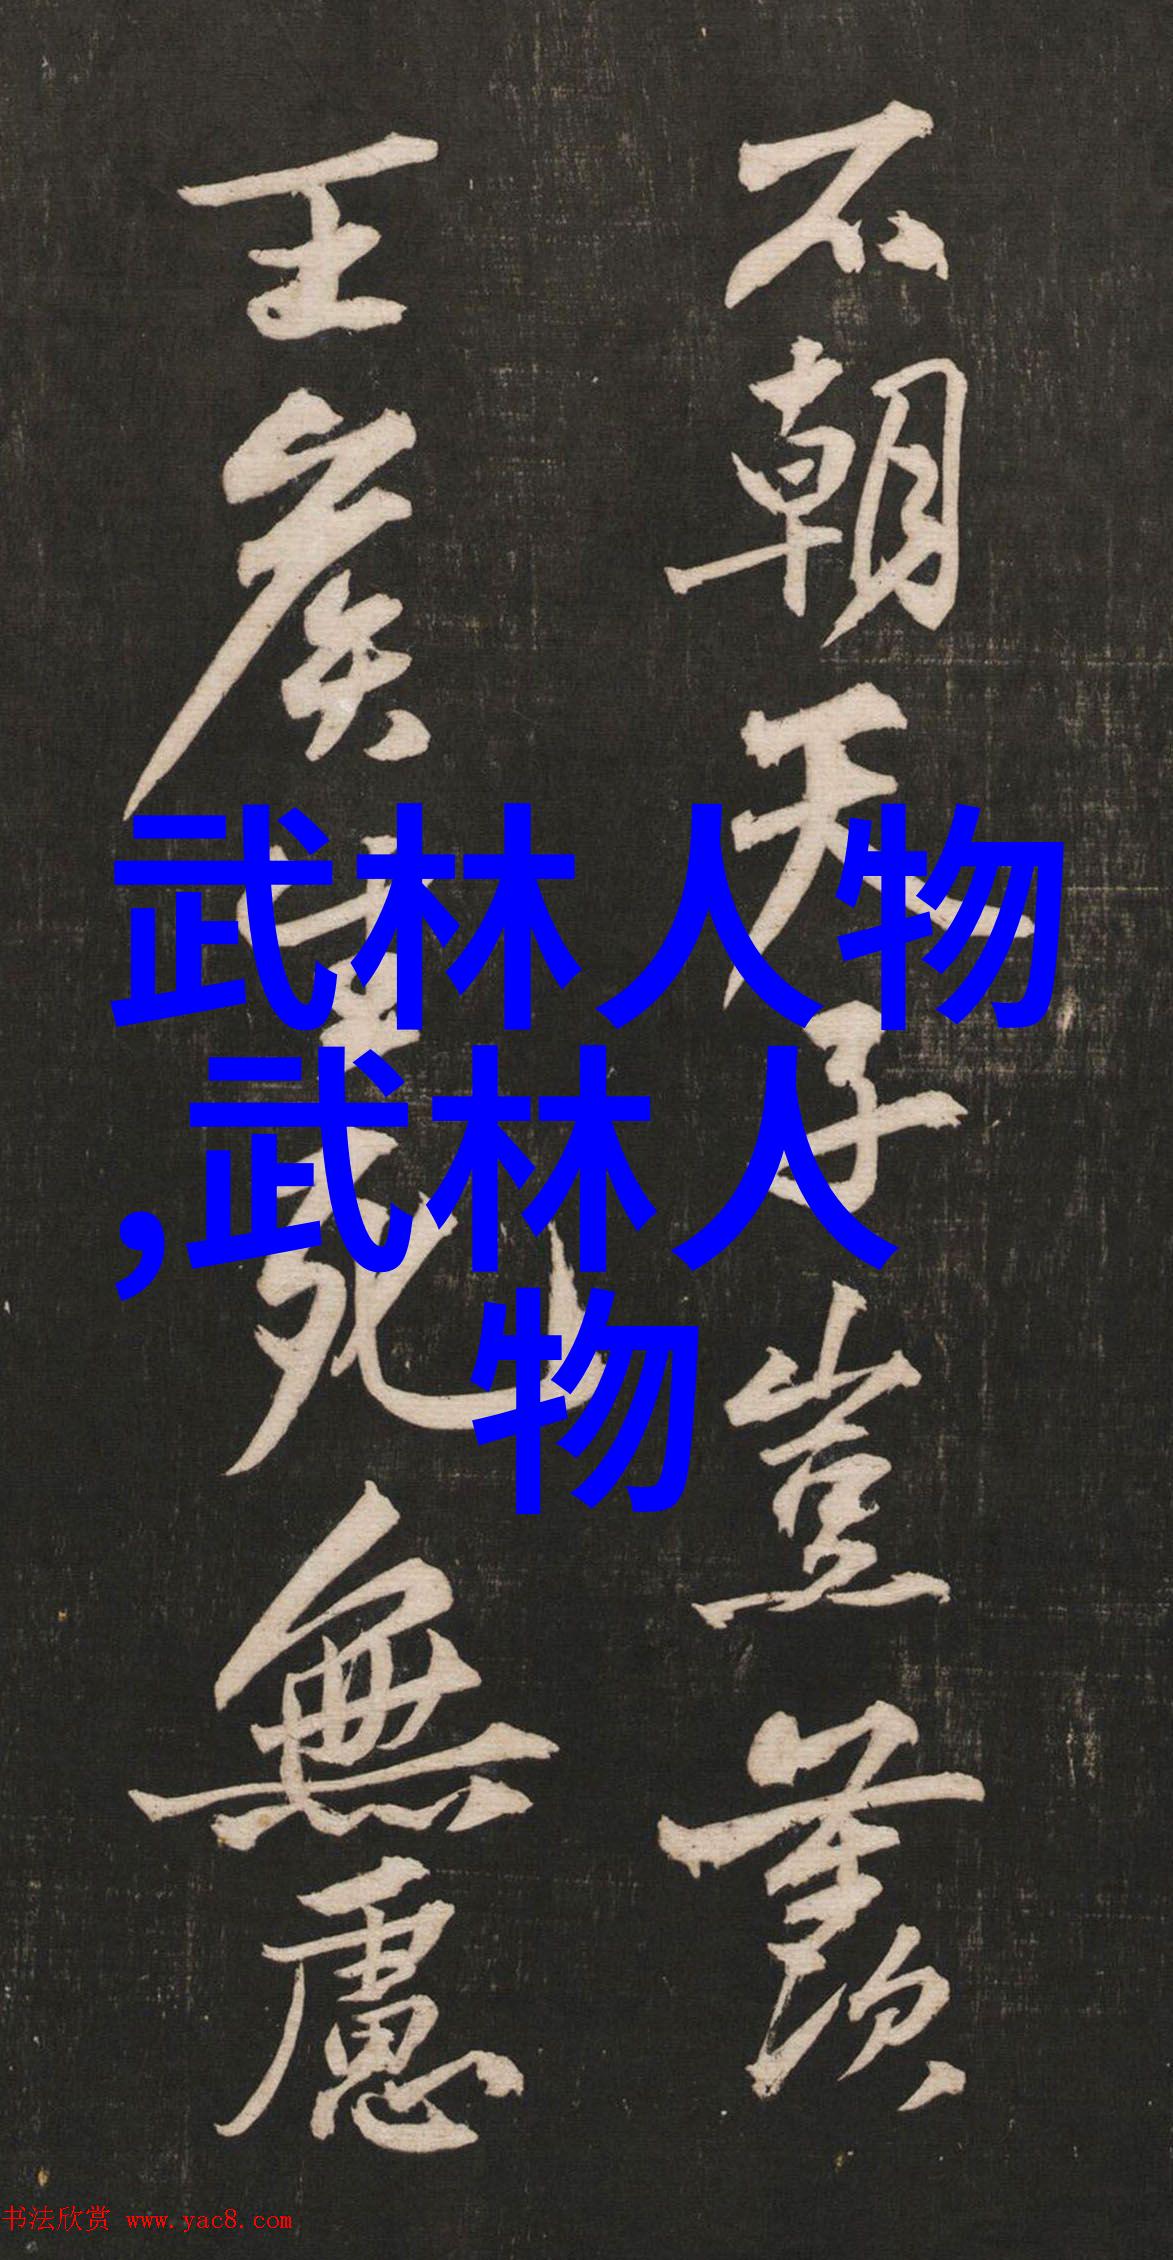 不朝天子豈羨
王侯死無慮
武林人物
,武林人
物
书法欣赏 www.yac8.com